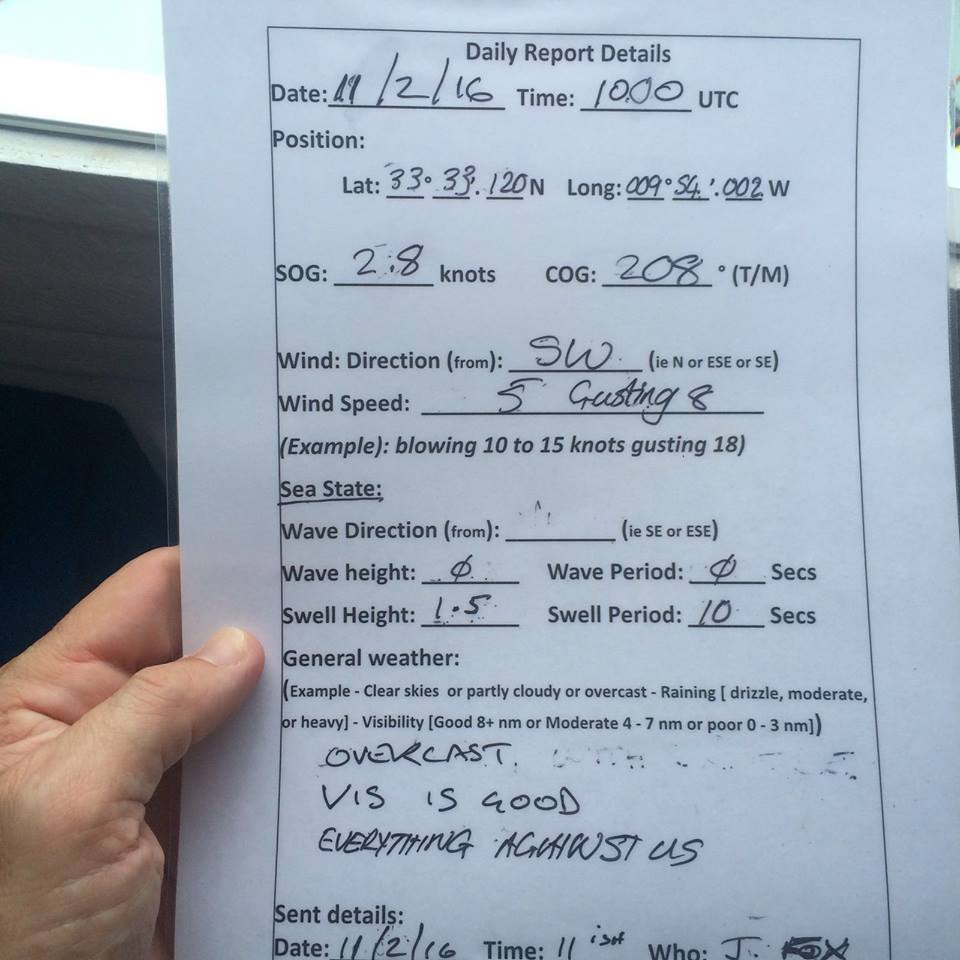 Daily Report Details
Date: 11/2/16 Time: 10.00 UTC
Position:
Lat: 33° 33. 120 N Long: 009° 54.'.002 W
SOG: 2.8 knots COG: 208 ° (T/M)
Wind: Direction (from): SW. (ie N or ESE or SE)
Wind Speed: 5 Gusting 8
(Example): blowing 10 to 15 knots gusting 18)
Sea State:
Wave Direction (from): (ie SE or ESE)
Wave height: Ø Wave Period: Ø Secs
Swell Height: 1.5 Swell Period: 10 Secs
General weather:
(Example - Clear skies or partly cloudy or overcast - Raining [ drizzle, moderate,
or heavy] - Visibility [Good 8+ nm or Moderate 4 - 7 nm or poor 0 - 3 nm])
OVERCAST.
VIS IS GOOD
EVERYTHING AGAINST US
Sent details:
Date: 11/2/16 Time: 11 Who: J. FOX